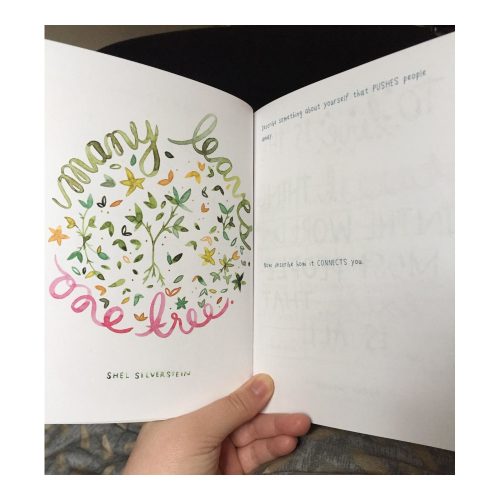 many leaves
one tree.
SHEL SILVERSTEIN
Describe something about yourself that PUSHES people
away.
Now describe how it CONNECTS you.